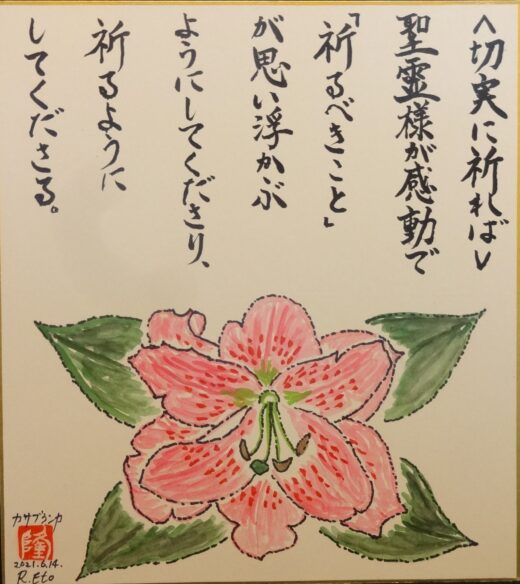 <切実に祈れば>
聖霊様が感動で
「祈るべきこと」
が思い浮かぶ
ようにしてくださり、
祈るように
してくださる。
カサブランカ
隆
2021.6.14.
R.Eto